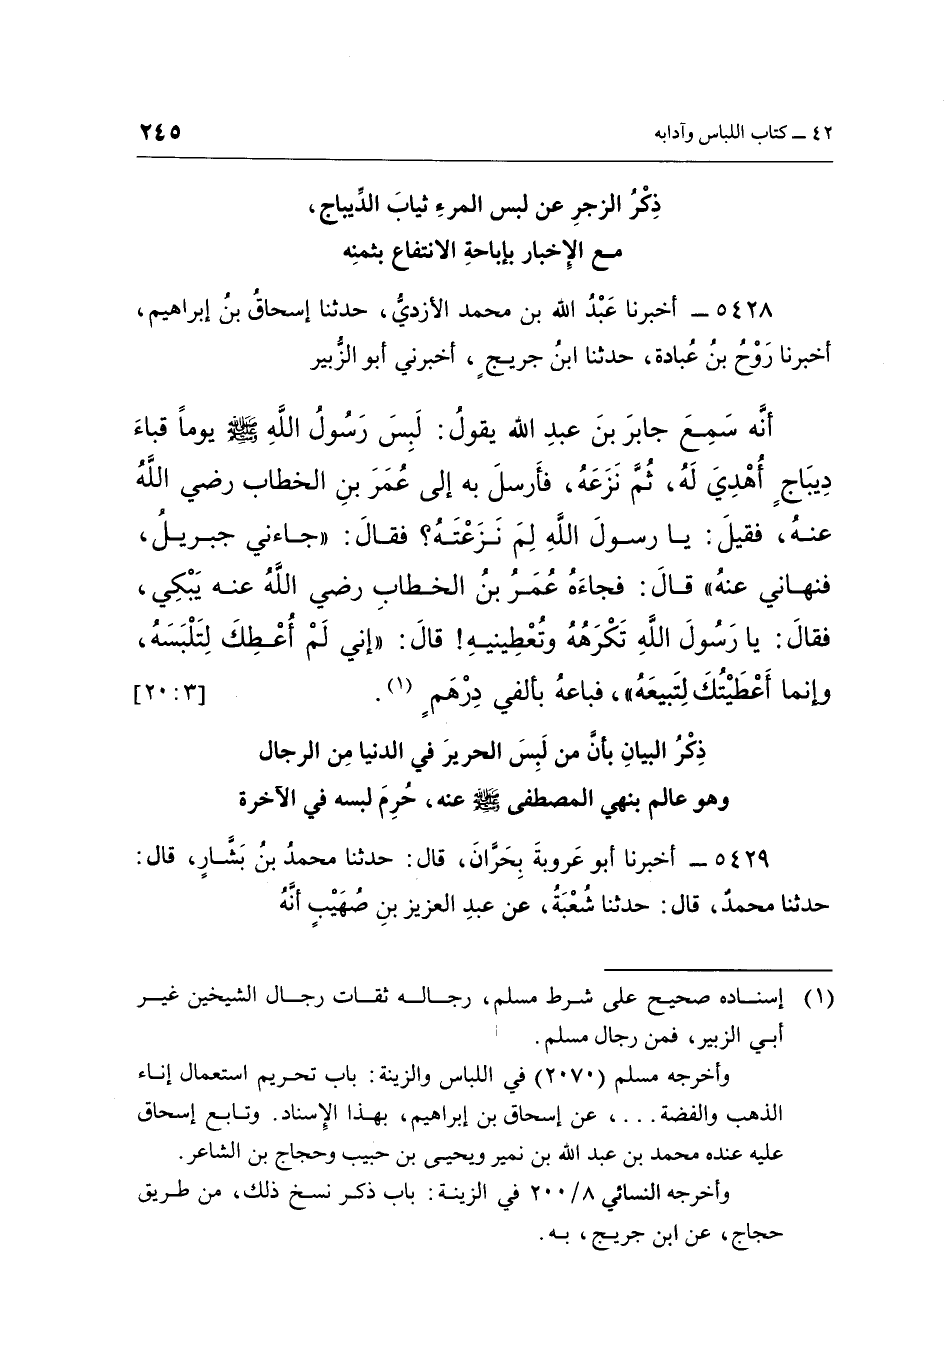 ٤٢ ــ كتاب اللباس وآدابه ٢٤٥
ذِكْرُ الزجرِ عن لبس المرءِ ثيابَ الدِّيباج،
مع الإِخبار بإباحةِ الانتفاع بثمنِه
٥٤٢٨ ــ أخبرنا عَبْدُ الله بن محمد الأزديُّ، حدثنا إسحاقُ بنُ إبراهيم،
أخبرنا رَوْحُ بنُ عُبادة، حدثنا ابنُ جريجٍ، أخبرني أبو الزُّبير
أنَّه سَمِعَ جابرَ بنَ عبدِ الله يقولُ: لَبِسَ رَسُولُ اللَّهِ ﷺ يوماً قباءَ
دِيبَاجٍ أُهْدِيَ لَهُ، ثُمَّ نَزَعَهُ، فأَرسلَ به إلى عُمَرَ بنِ الخطاب رضي اللَّهُ
عنهُ، فقيلَ: يا رسولَ اللَّهِ لِمَ نَزَعْتَهُ؟ فقالَ: «جاءني جبريلُ،
فنهاني عنهُ» قالَ: فجاءَهُ عُمَرُ بنُ الخطابِ رضي اللَّهُ عنه يَبْكِي،
فقالَ: يا رَسُولَ اللَّهِ تَكْرَهُهُ وتُعْطِينيهِ! قالَ: «إني لَمْ أُعْطِكَ لِتَلْبَسَهُ،
وإنما أَعْطَيْتُكَ لِتَبِيعَهُ»، فباعهُ بألفي دِرْهَمٍ (١). [٢٠:٣]
ذِكْرُ البيانِ بأنَّ من لَبِسَ الحريرَ في الدنيا مِن الرجال
وهو عالم بنهي المصطفى ﷺ عنه، حُرِمَ لبسه في الآخرة
٥٤٢٩ ــ أخبرنا أبو عَروبةَ بِحَرَّانَ، قال: حدثنا محمدُ بنُ بَشَّارٍ، قال:
حدثنا محمدٌ، قال: حدثنا شُعْبَةُ، عن عبدِ العزيز بنِ صُهَيْبٍ أنَّهُ
(١) إسناده صحيح على شرط مسلم، رجاله ثقات رجال الشيخين غير
أبي الزبير، فمن رجال مسلم.
وأخرجه مسلم (٢٠٧٠) في اللباس والزينة: باب تحريم استعمال إناء
الذهب والفضة . . . ، عن إسحاق بن إبراهيم، بهذا الإِسناد. وتابع إسحاق
عليه عنده محمد بن عبد الله بن نمير ويحيى بن حبيب وحجاج بن الشاعر.
وأخرجه النسائي ٢٠٠/٨ في الزينة: باب ذكر نسخ ذلك، من طريق
حجاج، عن ابن جريج، به.